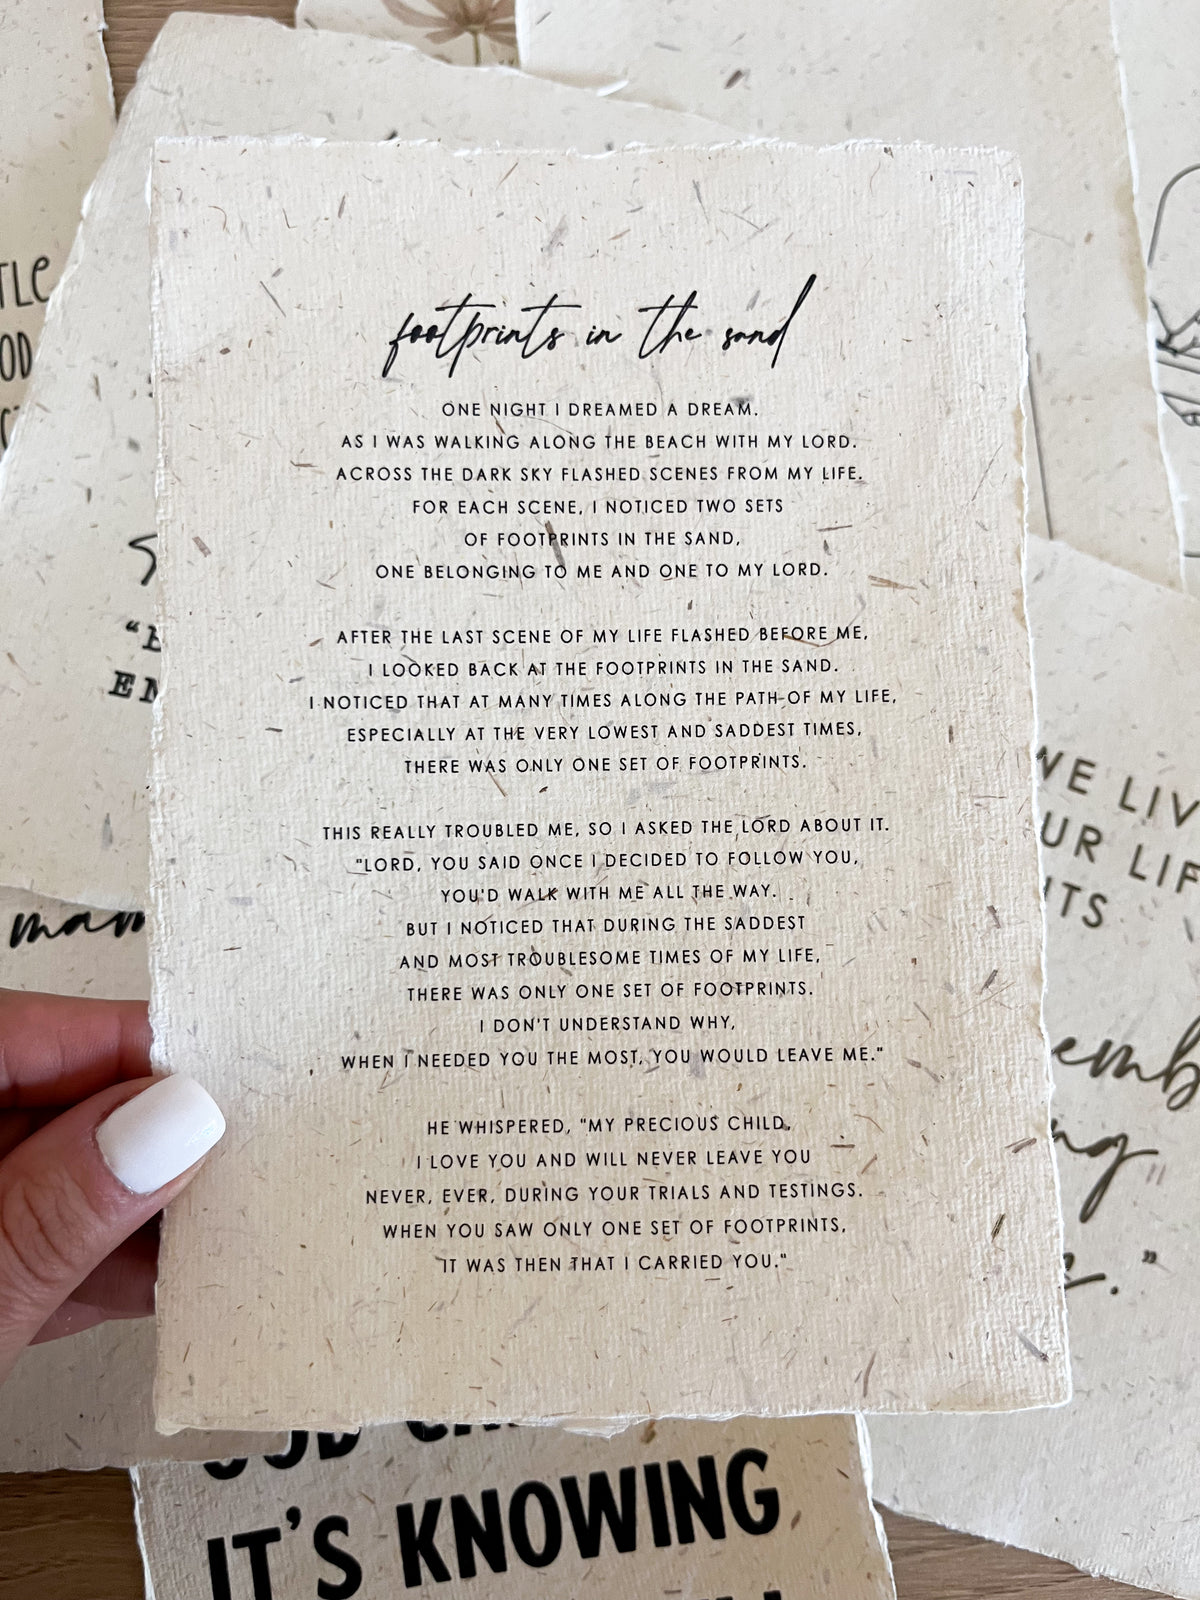 footprints in the sand
ONE NIGHT I DREAMED A DREAM.
AS I WAS WALKING ALONG THE BEACH WITH MY LORD.
ACROSS THE DARK SKY FLASHED SCENES FROM MY LIFE.
FOR EACH SCENE, I NOTICED TWO SETS
OF FOOTPRINTS IN THE SAND,
ONE BELONGING TO ME AND ONE TO MY LORD.
AFTER THE LAST SCENE OF MY LIFE FLASHED BEFORE ME,
I LOOKED BACK AT THE FOOTPRINTS IN THE SAND.
I NOTICED THAT AT MANY TIMES ALONG THE PATH OF MY LIFE,
ESPECIALLY AT THE VERY LOWEST AND SADDEST TIMES,
THERE WAS ONLY ONE SET OF FOOTPRINTS.
THIS REALLY TROUBLED ME, SO I ASKED THE LORD ABOUT IT.
"LORD, YOU SAID ONCE I DECIDED TO FOLLOW YOU,
YOU'D WALK WITH ME ALL THE WAY.
BUT I NOTICED THAT DURING THE SADDEST
AND MOST TROUBLESOME TIMES OF MY LIFE,
THERE WAS ONLY ONE SET OF FOOTPRINTS.
I DON'T UNDERSTAND WHY,
WHEN I NEEDED YOU THE MOST, YOU WOULD LEAVE ME."
HE WHISPERED, "MY PRECIOUS CHILD,
I LOVE YOU AND WILL NEVER LEAVE YOU
NEVER, EVER, DURING YOUR TRIALS AND TESTINGS.
WHEN YOU SAW ONLY ONE SET OF FOOTPRINTS,
IT WAS THEN THAT I CARRIED YOU."
WE LIV
UR LIF
ITS
IT'S KNOWING